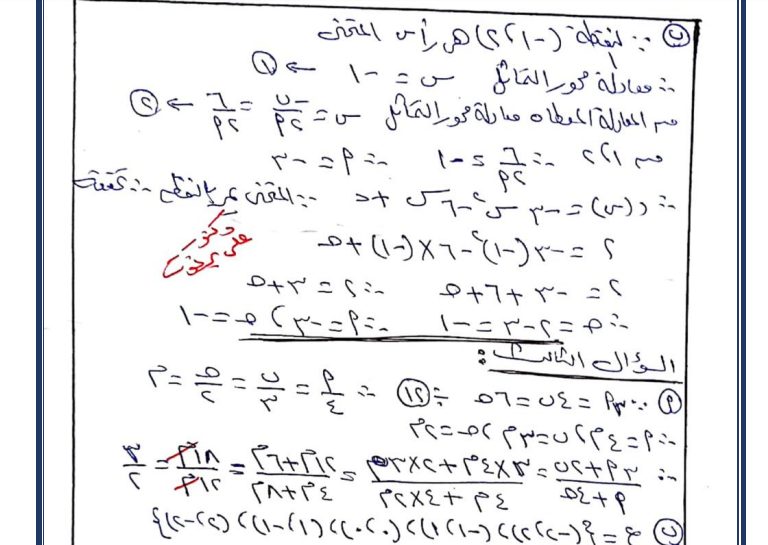 (ب) ∵ النقطة (-١، ٢) هى رأس المنحنى
∴ معادلة محور التماثل س = -١ ← (١)
من المعادلة المعطاه معادلة محور التماثل س = -ب/٢أ = ٦/٢أ ← (٢)
من ١، ٢ ∴ ٦/٢أ = -١ ∴ أ = -٣
∴ د(س) = -٣س² - ٦س + حـ ∵ المنحنى يمر بالنقطة ∴ تحققه
٢ = -٣(-١)² - ٦×(-١) + حـ
٢ = -٣ + ٦ + حـ ∴ ٢ = ٣ + حـ
∴ حـ = ٢ - ٣ = -١ ∴ أ = -٣، حـ = -١
السؤال الثالث:
(أ) ∵ ٣أ = ٤ب = ٦حـ ÷ (١٢) ∴ أ/٤ = ب/٣ = حـ/٢ = م
∴ أ = ٤م، ب = ٣م، حـ = ٢م
∴ (٣أ+٢ب)/(أ+٤حـ) = (٣×٤م+٢×٣م)/(٤م+٤×٢م) = (١٢م+٦م)/(٤م+٨م) = ١٨م/١٢م = ٣/٢
(ب) ع = {(-٢، ٢)، (-١، ١)، (٠، ٠)، (١، -١)، (٢، -٢)}